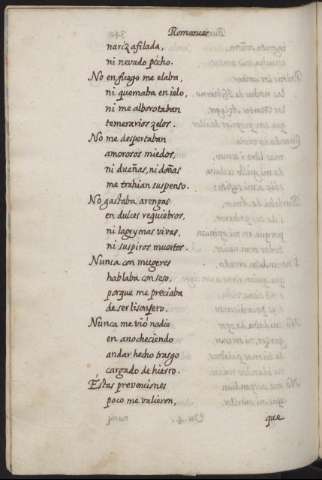 Romances
nariz afilada,
ni nevado pecho.
No en fuego me elaba,
ni quemaba en ielo,
ni me alborotaban
temerarios zelos.
No me despertaban
amorosos miedos,
ni dueñas, ni doñas
me trahian suspenso.
No gastaba arengas
en dulces requiebros,
ni lagrymas vivas,
ni suspiros muertos.
Nunca con mugeres
hablaba con seso,
porque me preciaba
de ser lisongero.
Nunca me vió nadie
en anocheciendo
andar hecho trasgo
cargado de hierro.
Estas prevenciones
poco me valieron,
que